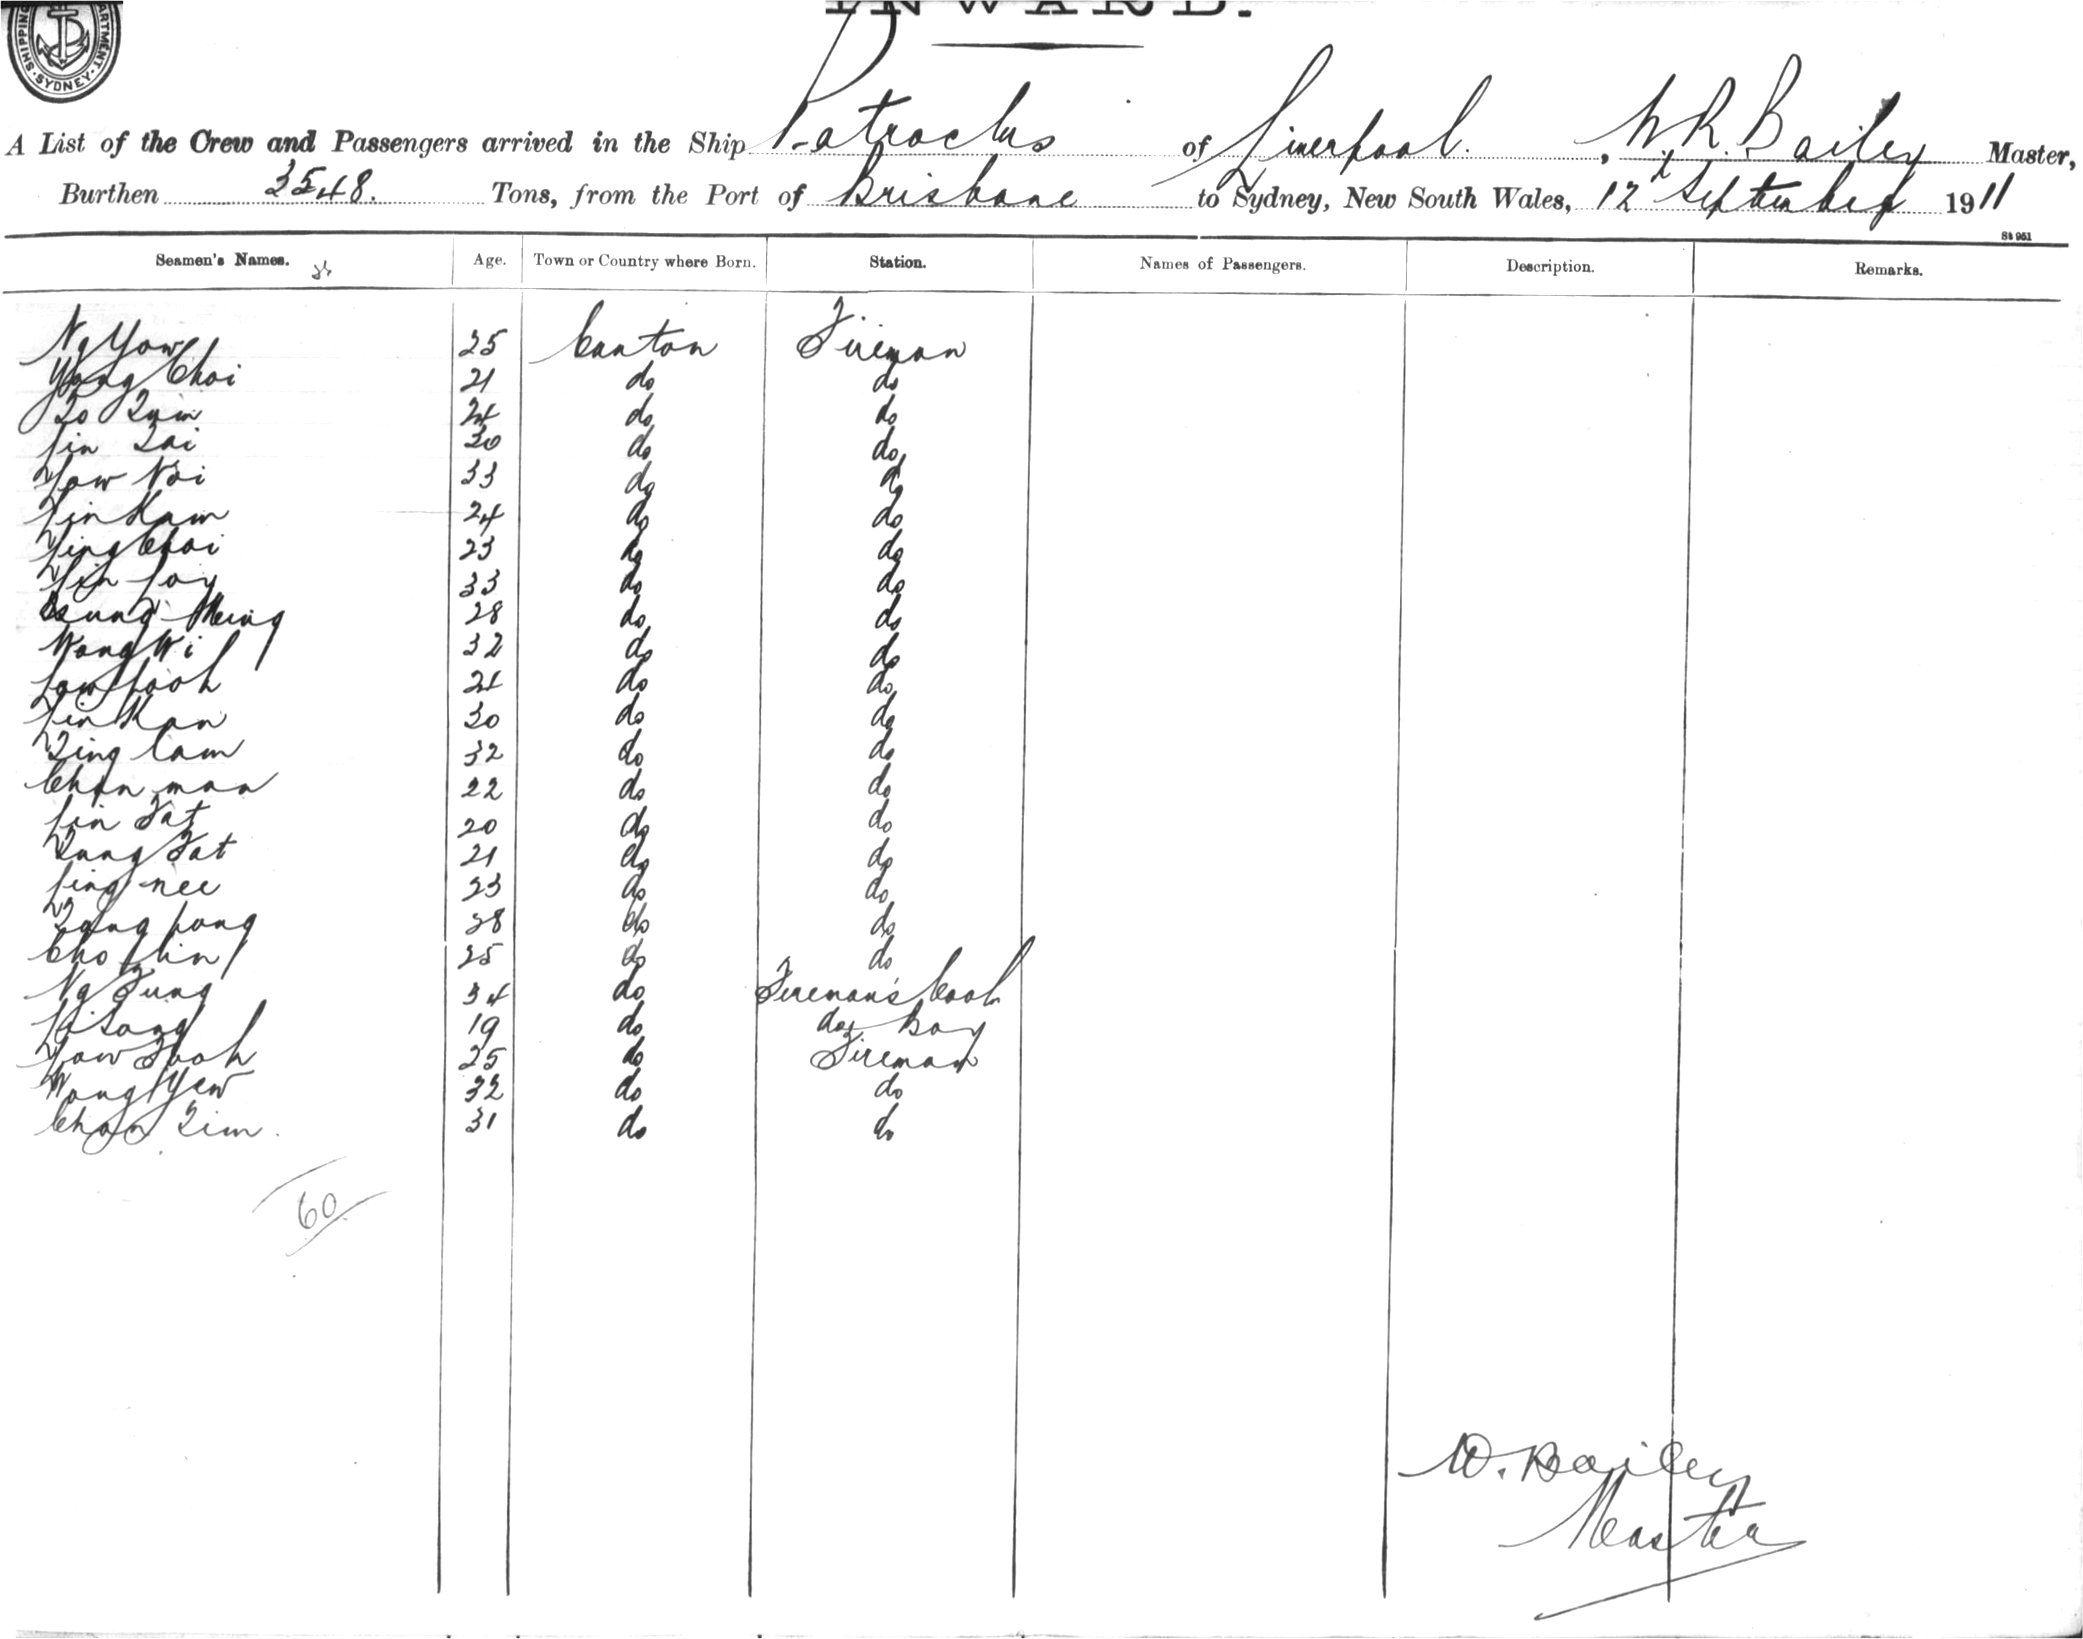 INWARD.
SHIPPING DEPARTMENT. SYDNEY.
A List of the Crew and Passengers arrived in the Ship Patroclus of Liverpool. , W. R. Bailey Master,
Burthen 3548. Tons, from the Port of Brisbane to Sydney, New South Wales, 12th September 1911
St 951
Seamen's Names. Age. Town or Country where Born. Station. Names of Passengers. Description. Remarks.
Ng Yow 25 Canton Fireman
Yong Choi 21 do do
24 do do
30 do do
Yow 33 do do
Yin Kam 24 do do
Ying Choi 23 do do
33 do do
28 do do
Wong Wi 32 do do
21 do do
Yin Kan 30 do do
Ting Cam 32 do do
Chan man 22 do do
Lin Fat 20 do do
Fat 21 do do
Ling nee 23 do do
28 do do
Cho Lin 25 do do
Ng Fung 34 do Fireman's Cook
19 do do Boy
Yow Fook 25 do Fireman
Wong Yew 32 do do
Chan Tim. 31 do do
60
W. Bailey
Master